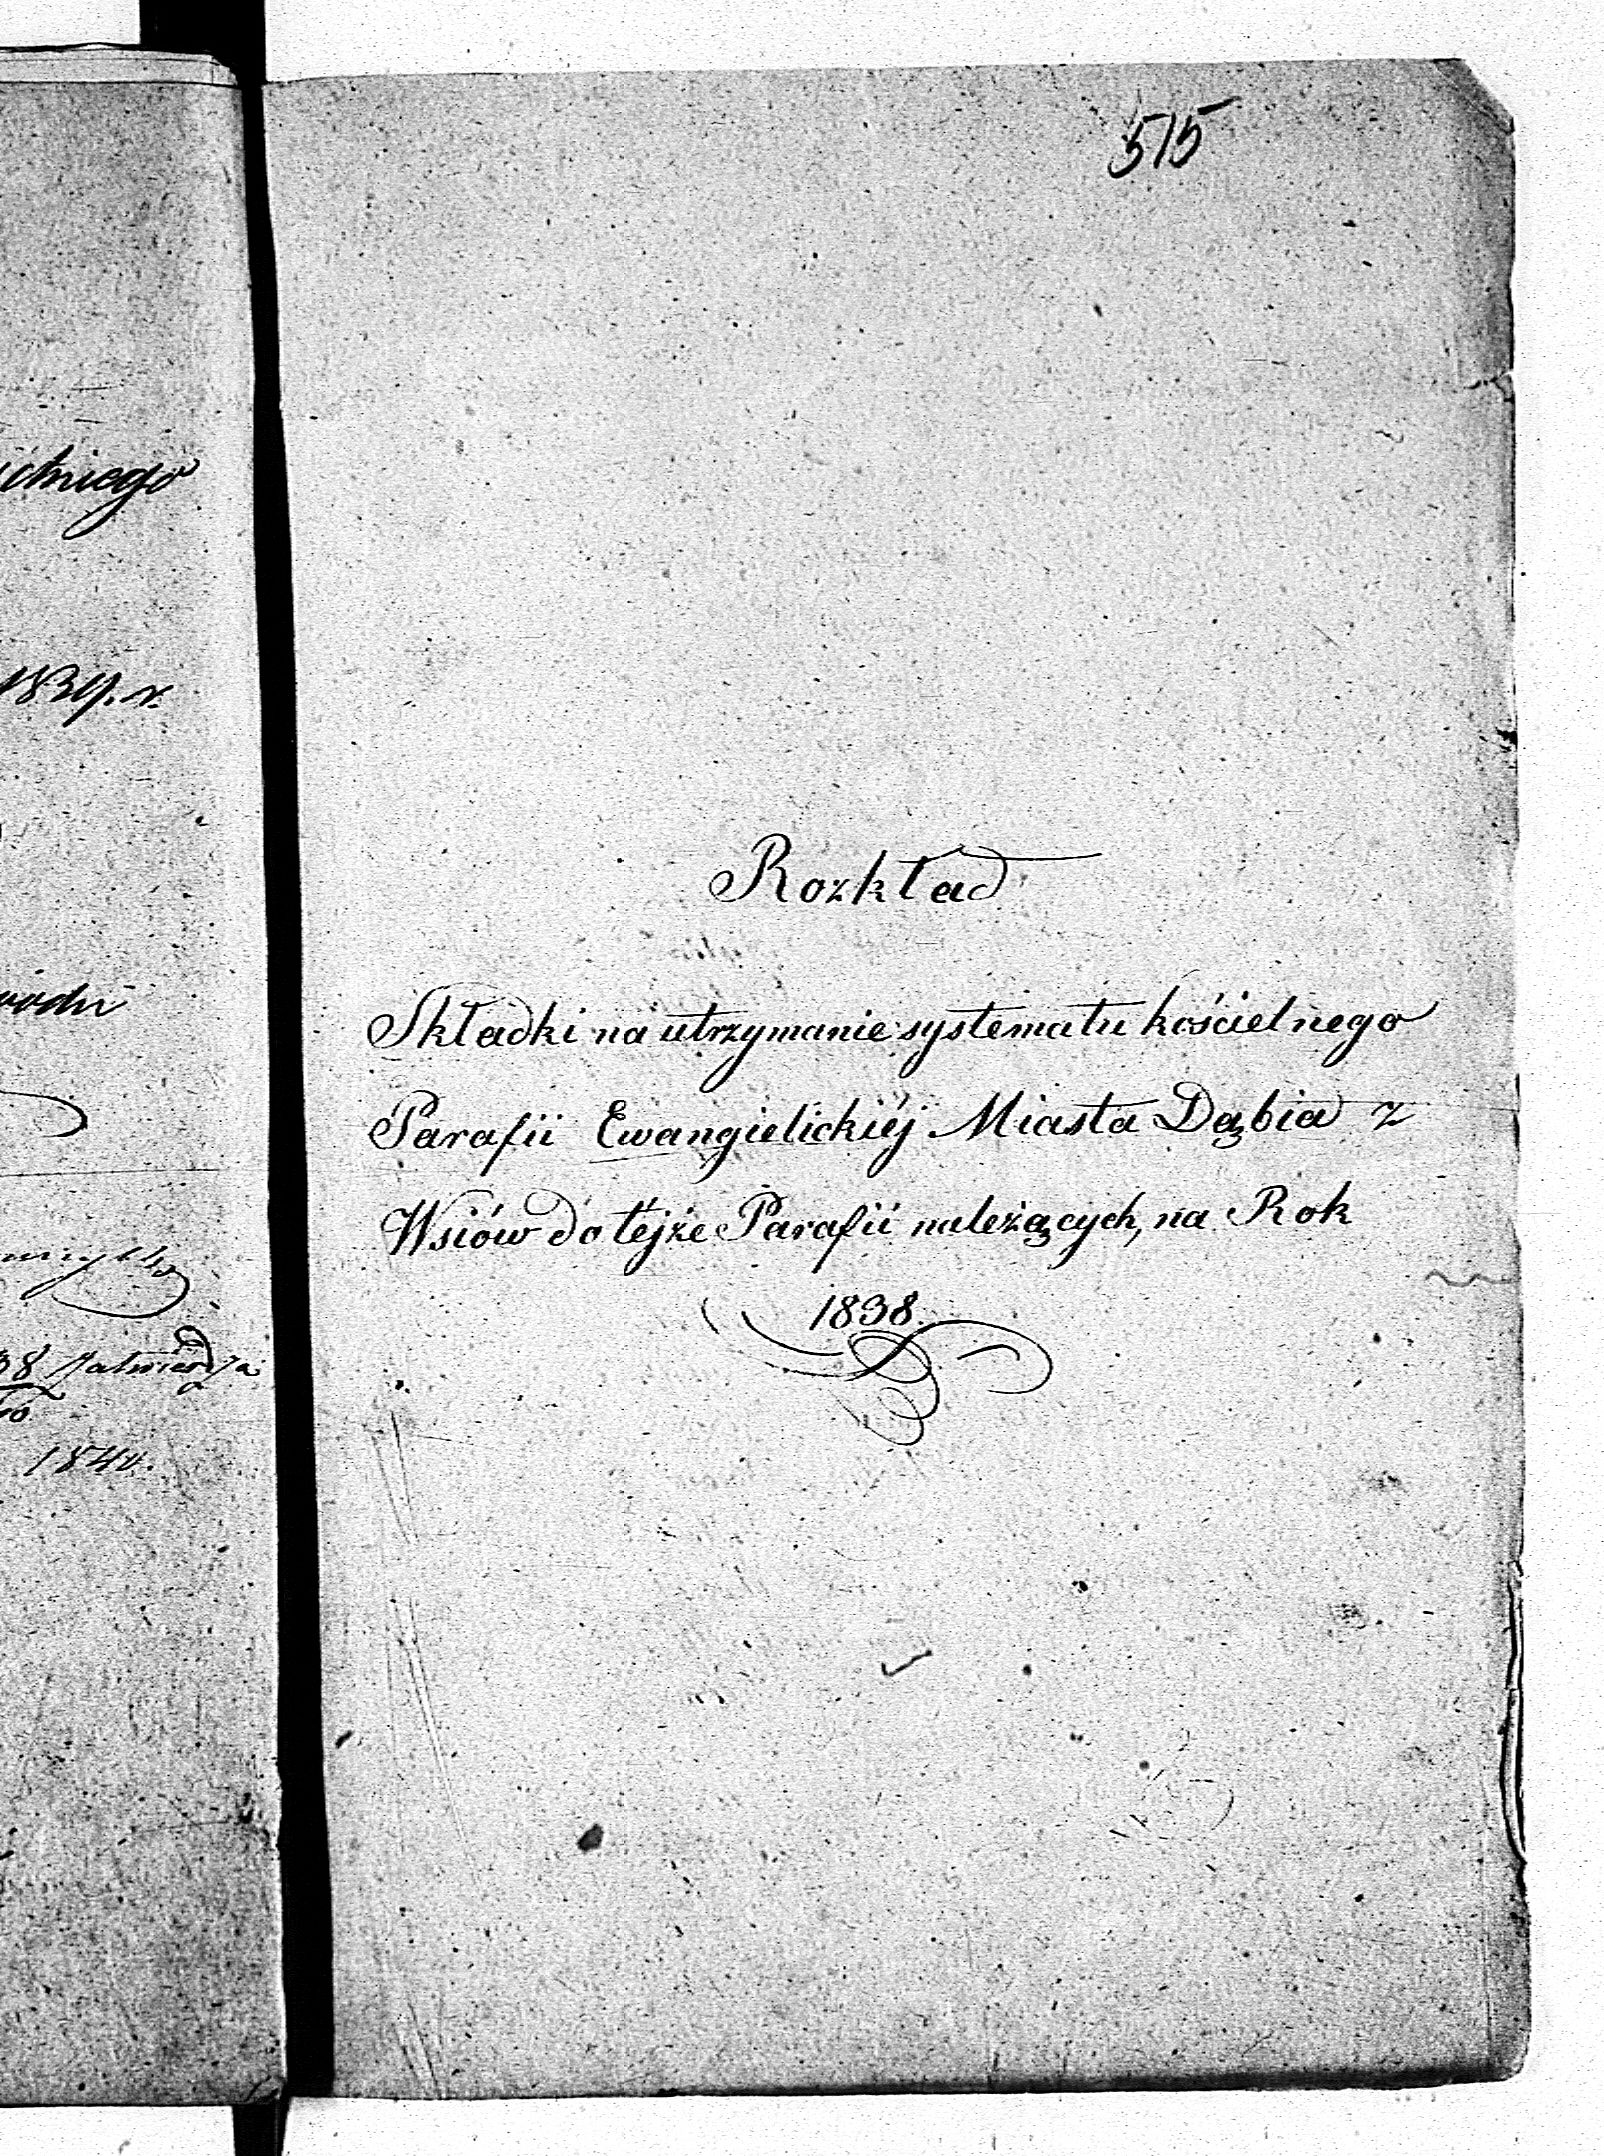 1839. r.
1840.
515
Rozkład
Składki na utrzymanie systematu kościelnego
Parafii Ewangielickiéj Miasta Dąbia z
Wsiów do téjże Parafii należących, na Rok
1838.